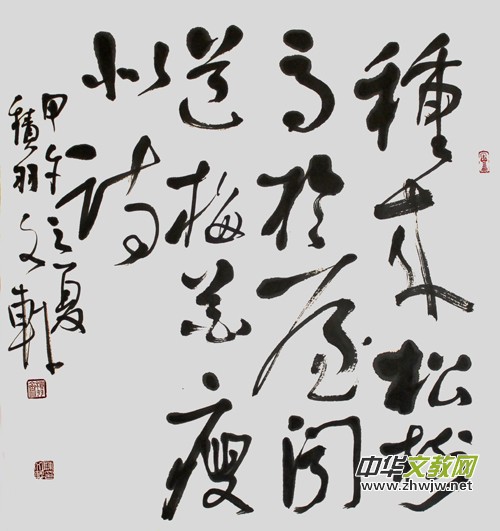 種来松樹
高於屋聞
道梅花瘦
似詩
甲午之夏
積羽文軒
中华文教网
www.zhwjw.net